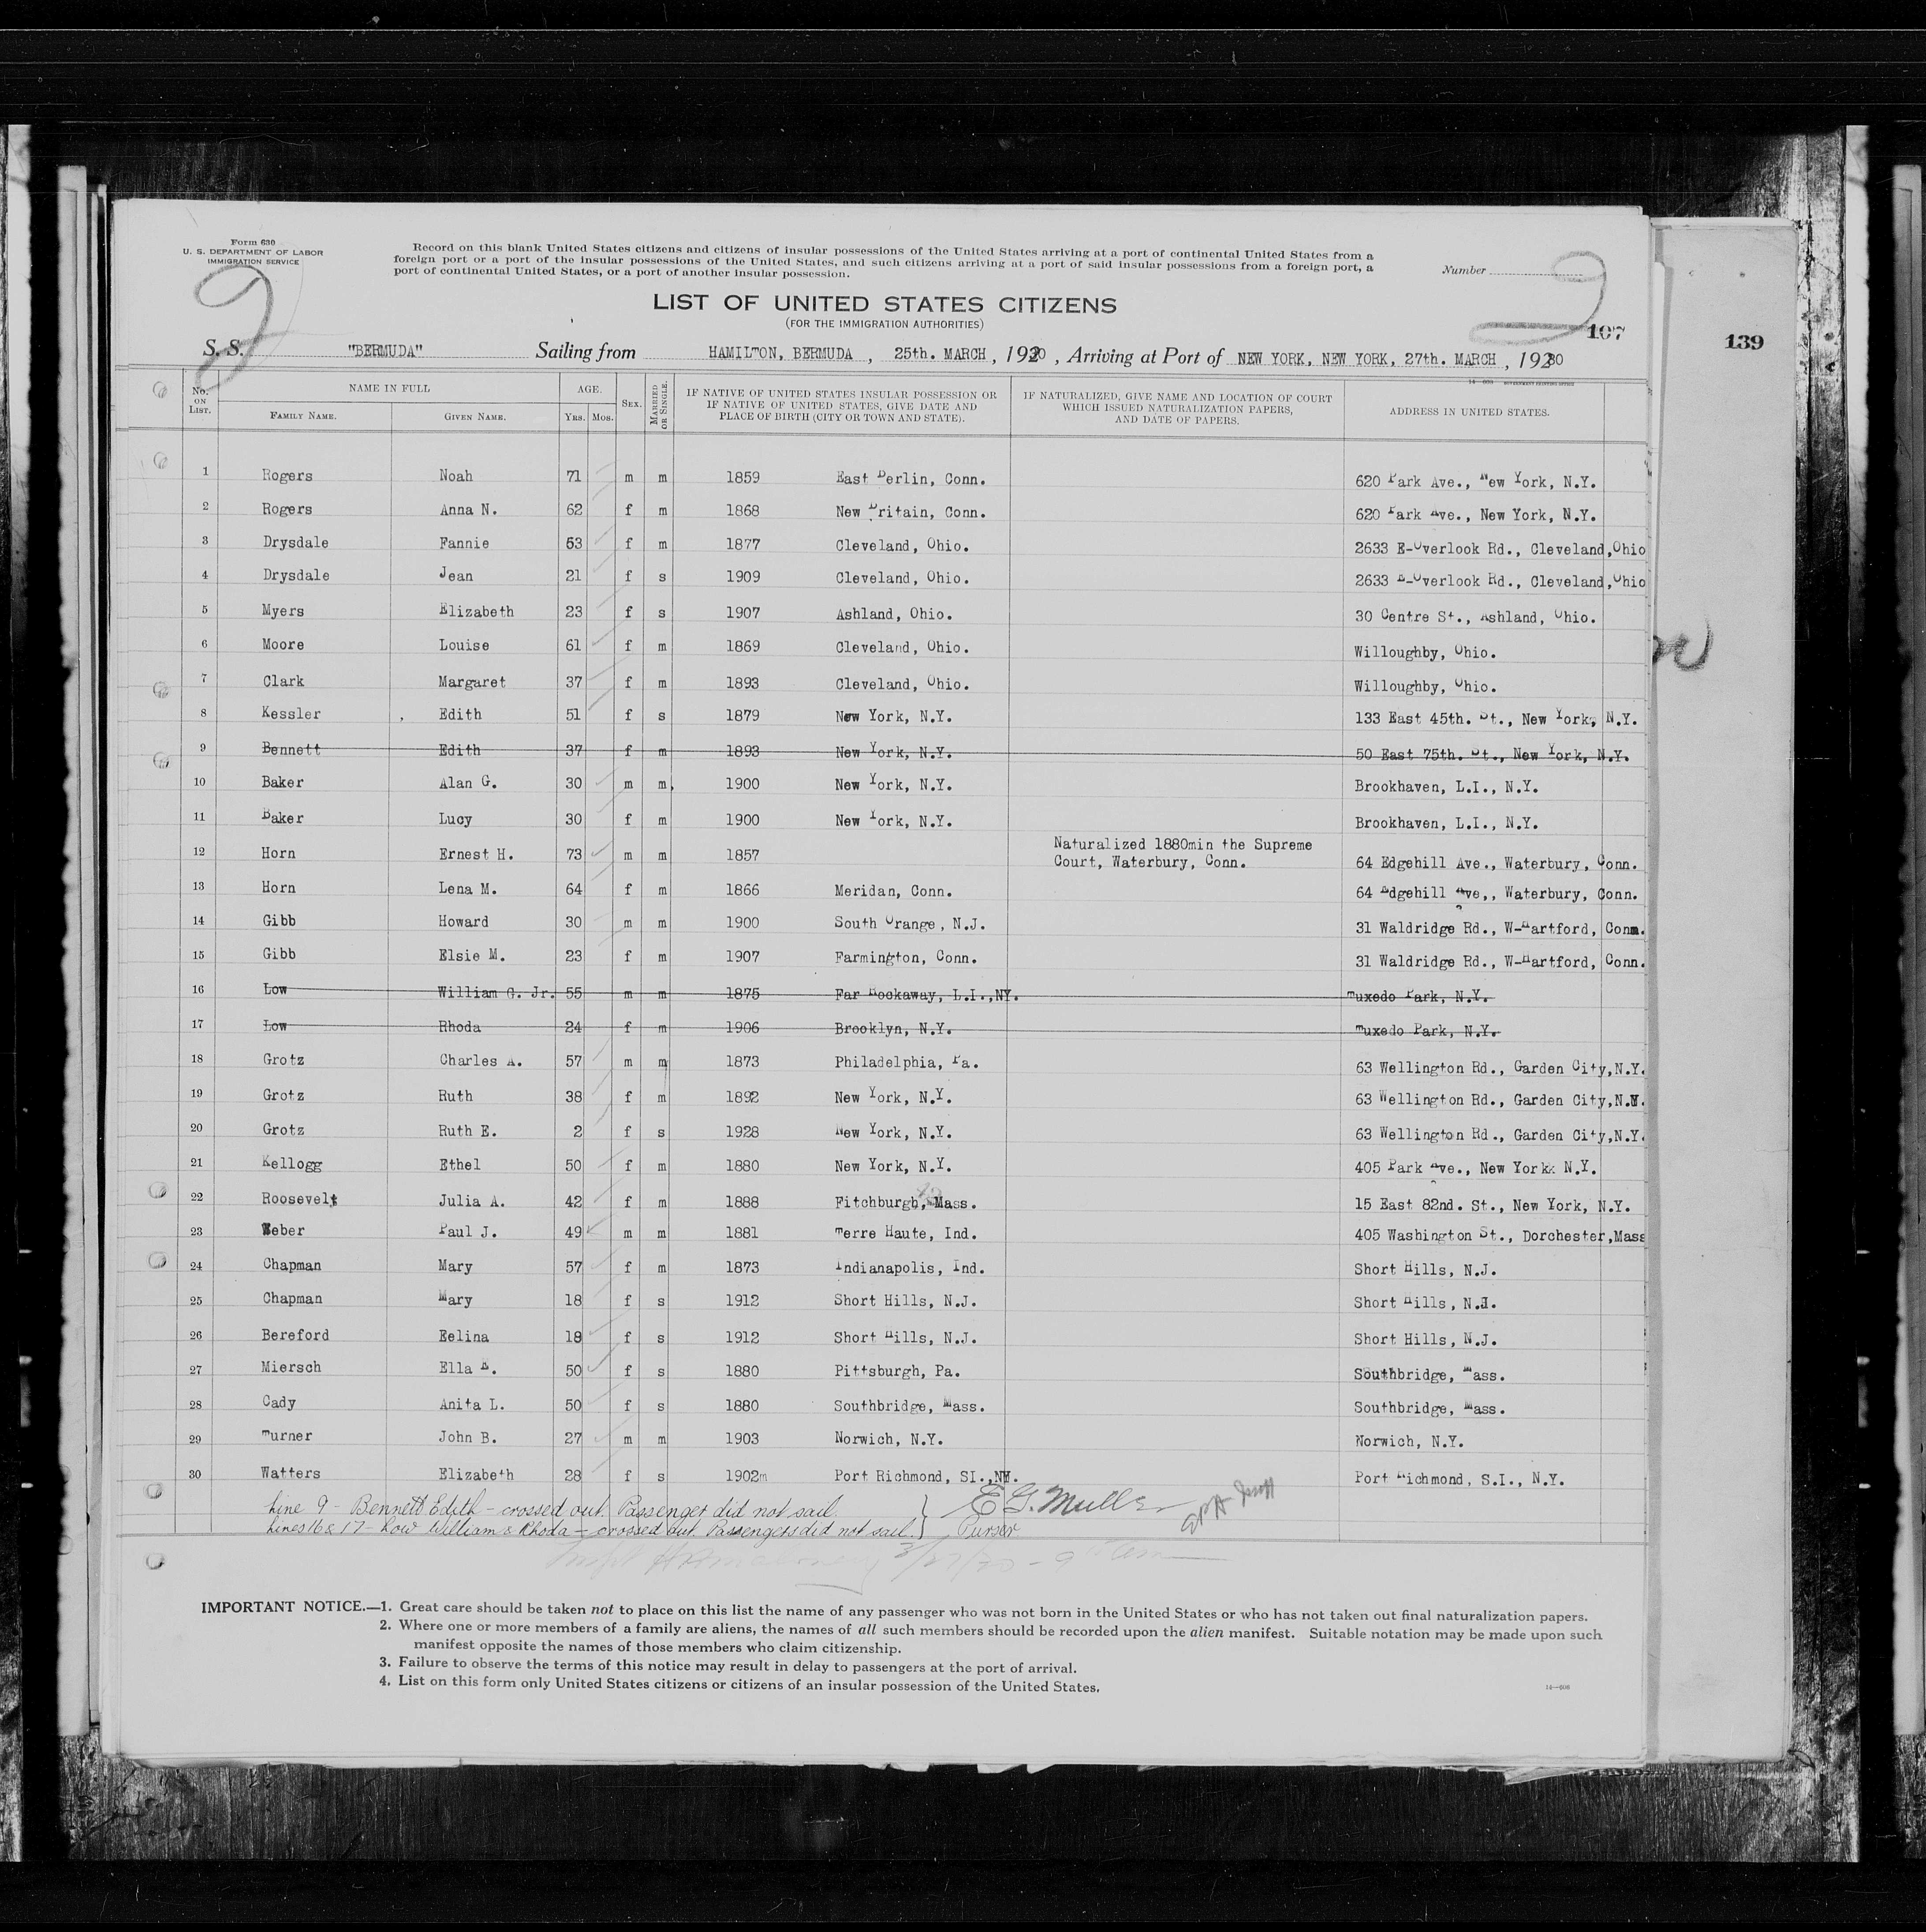 Form 630
U. S. DEPARTMENT OF LABOR
IMMIGRATION SERVICE
Record on this blank United States citizens and citizens of insular possessions of the United States arriving at a port of continental United States from a
foreign port or a port of the insular possessions of the United States, and such citizens arriving at a port of said insular possessions from a foreign port, a
port of continental United States, or a port of another insular possession.
Number
2
2
LIST OF UNITED STATES CITIZENS
(FOR THE IMMIGRATION AUTHORITIES)
107
139
S. S. "BERMUDA" Sailing from HAMILTON, BERMUDA, 25th. MARCH, 1930, Arriving at Port of NEW YORK, NEW YORK, 27th. MARCH, 1930
No. ON LIST. NAME IN FULL FAMILY NAME. GIVEN NAME. AGE. YRS. MOS. SEX. MARRIED OR SINGLE. IF NATIVE OF UNITED STATES INSULAR POSSESSION OR IF NATIVE OF UNITED STATES, GIVE DATE AND PLACE OF BIRTH (CITY OR TOWN AND STATE). IF NATURALIZED, GIVE NAME AND LOCATION OF COURT WHICH ISSUED NATURALIZATION PAPERS, AND DATE OF PAPERS. ADDRESS IN UNITED STATES.
1 Rogers Noah 71 m m 1859 East Berlin, Conn. 620 Park Ave., New York, N.Y.
2 Rogers Anna N. 62 f m 1868 New Britain, Conn. 620 Park Ave., New York, N.Y.
3 Drysdale Fannie 53 f m 1877 Cleveland, Ohio. 2633 E-Overlook Rd., Cleveland,Ohio
4 Drysdale Jean 21 f s 1909 Cleveland, Ohio. 2633 E-Overlook Rd., Cleveland,Ohio
5 Myers Elizabeth 23 f s 1907 Ashland, Ohio. 30 Centre St., Ashland, Ohio.
6 Moore Louise 61 f m 1869 Cleveland, Ohio. Willoughby, Ohio.
7 Clark Margaret 37 f m 1893 Cleveland, Ohio. Willoughby, Ohio.
8 Kessler , Edith 51 f s 1879 New York, N.Y. 133 East 45th. St., New York, N.Y.
9 Bennett Edith 37 f m 1893 New York, N.Y. 50 East 75th. St., New York, N.Y.
10 Baker Alan G. 30 m m, 1900 New York, N.Y. Brookhaven, L.I., N.Y.
11 Baker Lucy 30 f m 1900 New York, N.Y. Brookhaven, L.I., N.Y.
12 Horn Ernest H. 73 m m 1857 Naturalized 1880min the Supreme Court, Waterbury, Conn. 64 Edgehill Ave., Waterbury, Conn.
13 Horn Lena M. 64 f m 1866 Meridan, Conn. 64 Edgehill Ave,, Waterbury, Conn.
14 Gibb Howard 30 m m 1900 South Orange, N.J. 31 Waldridge Rd., W-Hartford, Conn.
15 Gibb Elsie M. 23 f m 1907 Farmington, Conn. 31 Waldridge Rd., W-Hartford, Conn.
16 Low William G. Jr. 55 m m 1875 Far Rockaway, L.I.,NY. Tuxedo Park, N.Y.
17 Low Rhoda 24 f m 1906 Brooklyn, N.Y. Tuxedo Park, N.Y.
18 Grotz Charles A. 57 m m 1873 Philadelphia, Pa. 63 Wellington Rd., Garden City,N.Y.
19 Grotz Ruth 38 f m 1892 New York, N.Y. 63 Wellington Rd., Garden City,N.Y.
20 Grotz Ruth E. 2 f s 1928 New York, N.Y. 63 Wellington Rd., Garden City,N.Y.
21 Kellogg Ethel 50 f m 1880 New York, N.Y. 405 Park Ave., New York N.Y.
22 Roosevelt Julia A. 42 f m 1888 Fitchburgh, Mass. 15 East 82nd. St., New York, N.Y.
23 Weber Paul J. 49 m m 1881 Terre Haute, Ind. 405 Washington St., Dorchester,Mass
24 Chapman Mary 57 f m 1873 Indianapolis, Ind. Short Hills, N.J.
25 Chapman Mary 18 f s 1912 Short Hills, N.J. Short Hills, N.J.
26 Bereford Eelina 18 f s 1912 Short Hills, N.J. Short Hills, N.J.
27 Miersch Ella E. 50 f s 1880 Pittsburgh, Pa. Southbridge, Mass.
28 Cady Anita L. 50 f s 1880 Southbridge, Mass. Southbridge, Mass.
29 Turner John B. 27 m m 1903 Norwich, N.Y. Norwich, N.Y.
30 Watters Elizabeth 28 f s 1902m Port Richmond, SI.,NY. Port Richmond, S.I., N.Y.
Line 9 - Bennett Edith - crossed out. Passenger did not sail. } E G. Muller
Lines 16 & 17 - Low William & Rhoda - crossed out. Passengers did not sail. } Purser
IMPORTANT NOTICE.—1. Great care should be taken not to place on this list the name of any passenger who was not born in the United States or who has not taken out final naturalization papers.
2. Where one or more members of a family are aliens, the names of all such members should be recorded upon the alien manifest. Suitable notation may be made upon such
manifest opposite the names of those members who claim citizenship.
3. Failure to observe the terms of this notice may result in delay to passengers at the port of arrival.
4. List on this form only United States citizens or citizens of an insular possession of the United States.